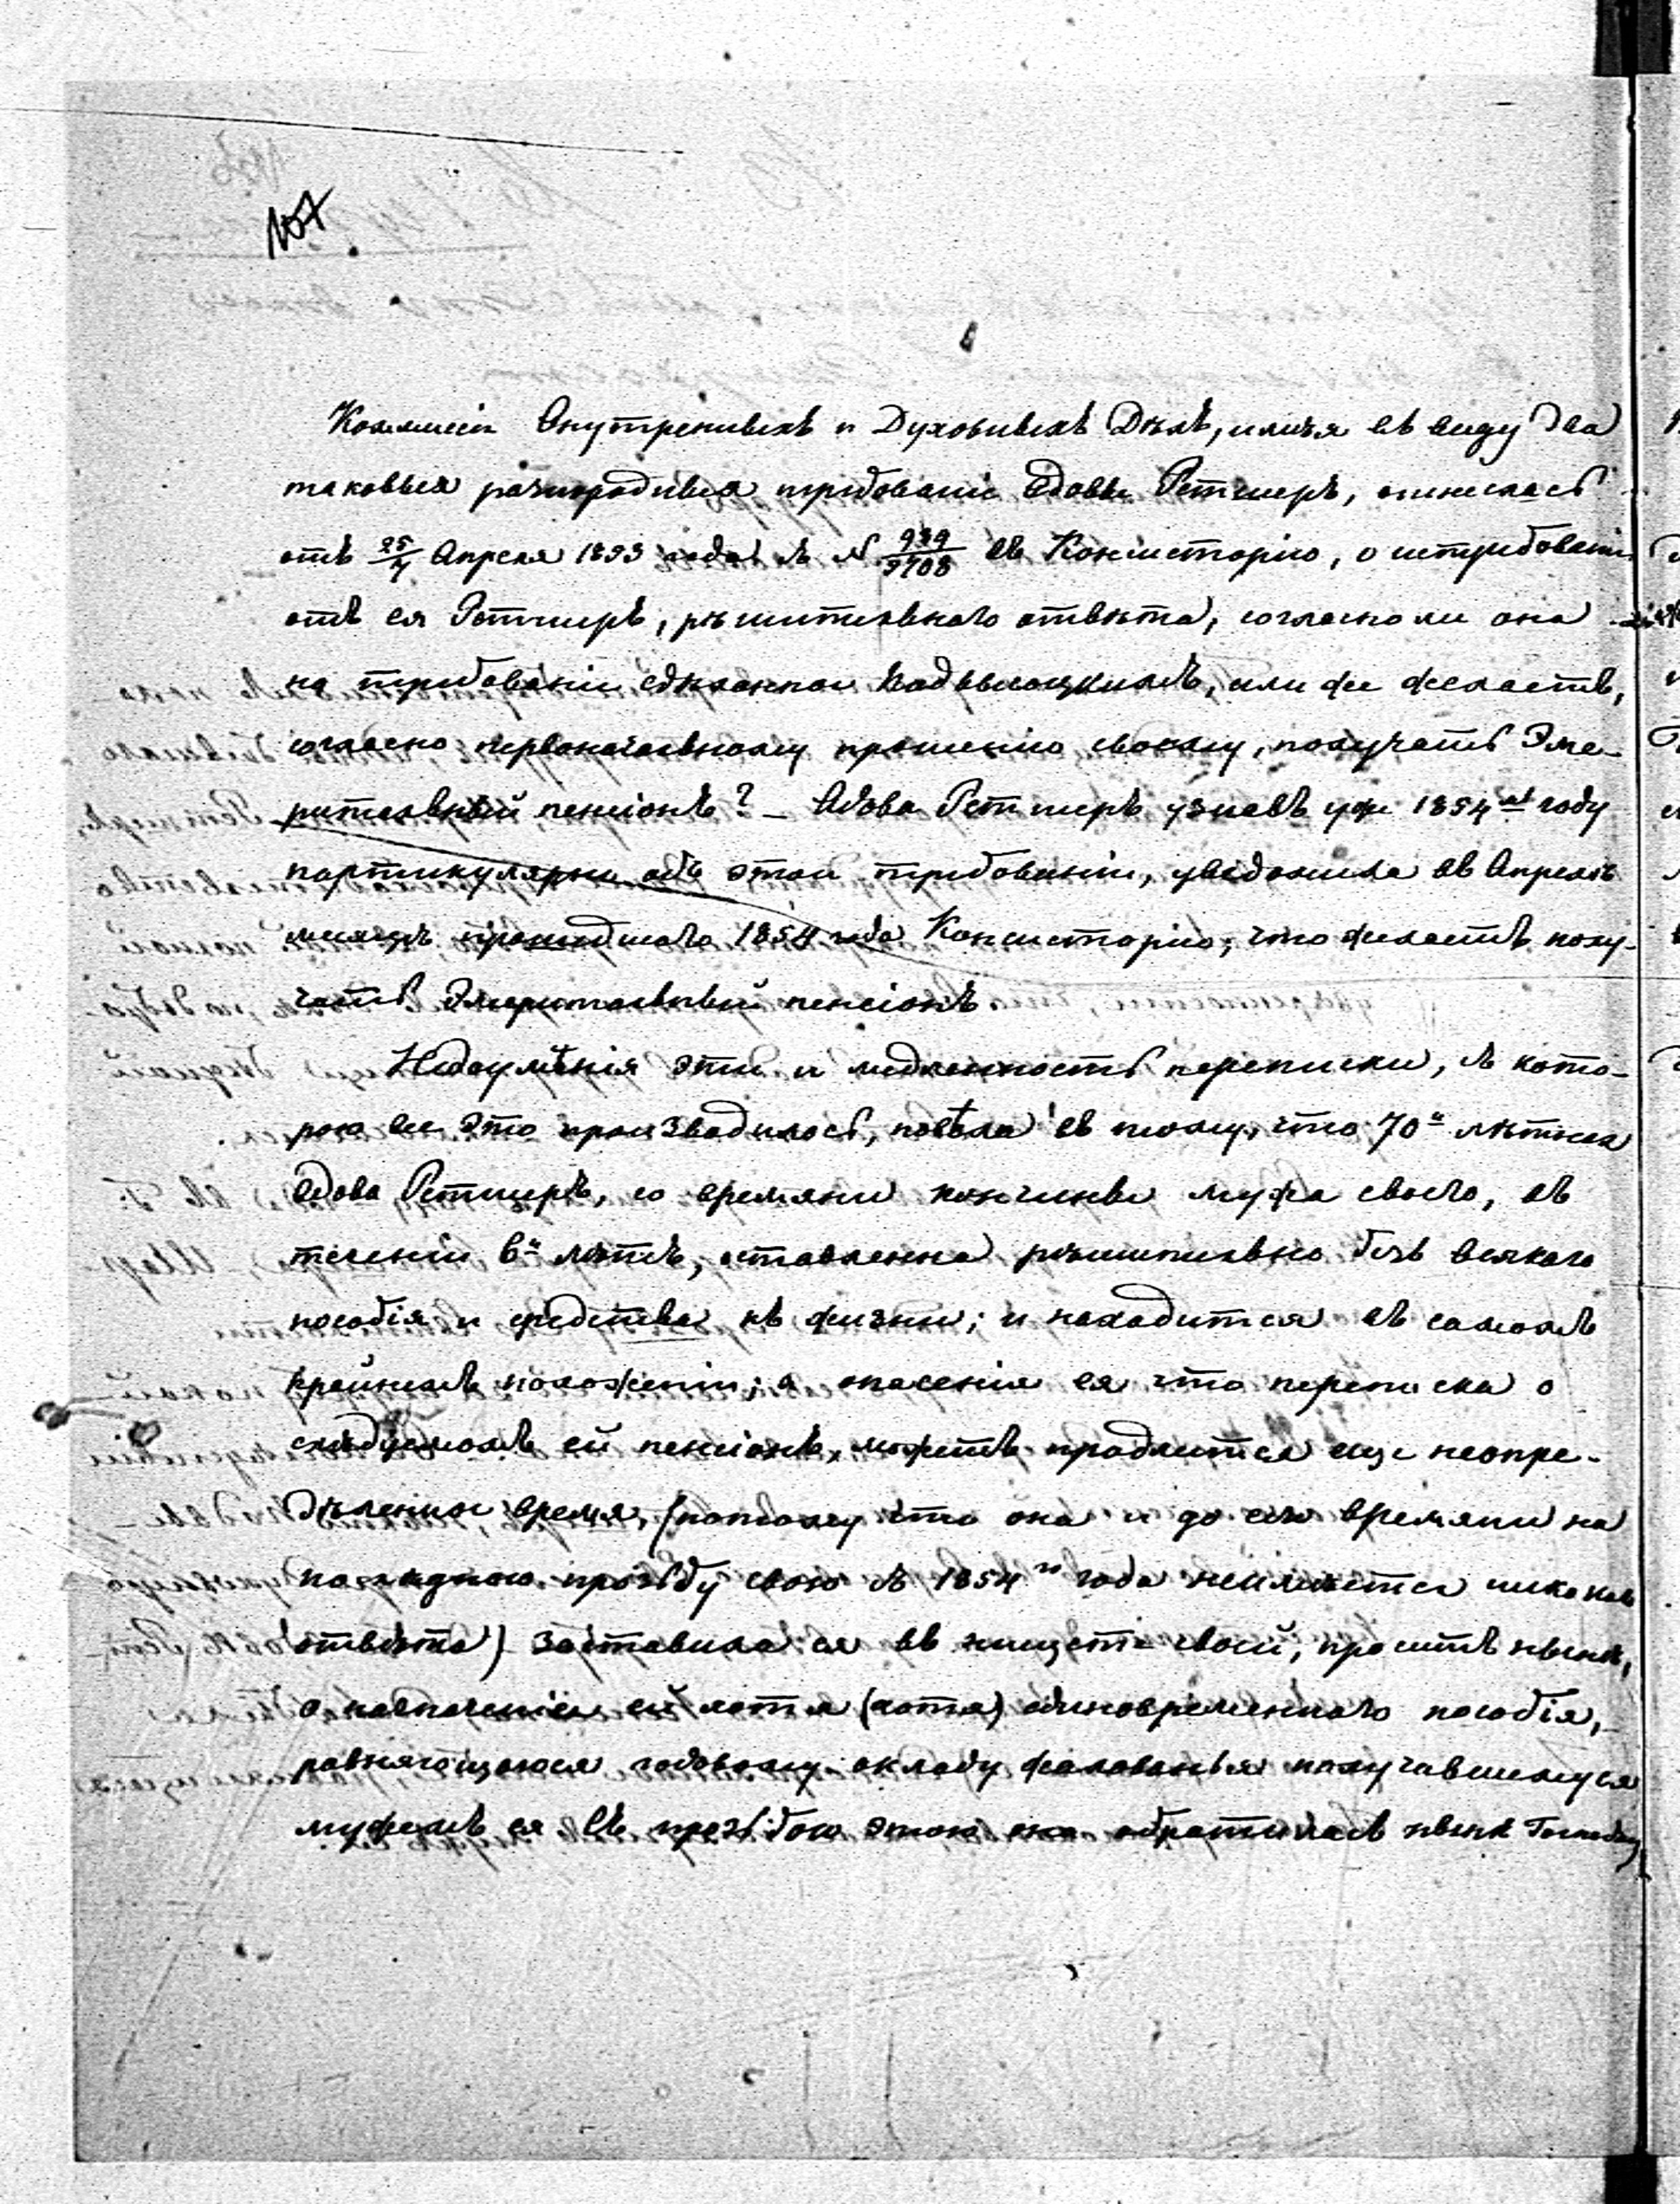 107
Коммисія Внутреннихъ и Духовныхъ Дѣлъ, имѣя въ виду два
таковыя разнородныя требованіе вдовы Ретшеръ, отнеслась
отъ 25/7 Апреля 1853 года № 939/9708 въ Консисторію, о истребованіи
отъ ея Ретшеръ, рѣшительнаго отвѣта, согласно ли она
на требованіе сдѣланное Кадавлоцкимъ, или же желаетъ,
согласно первоначальному прошенію своему, получать Эме-
ритальный пенсіонъ? – Вдова Ретшеръ узнавъ уже 1854 году
партикулярно объ этом требованіи, уведомила въ Апрелѣ
месяцѣ прошедшаго 1854 года Консисторію, что желаетъ полу-
чать Эмеритальный пенсіонъ.
Недоумѣнія эти и медленность переписки, съ кото-
рою все это производилось, повѣла въ тому, что 70и лѣтняя
вдова Ретшеръ, со времяни кончины мужа своего, въ
теченіи 6и лѣтъ, оставленна рѣшительно безъ всякаго
пособія и средства къ жизни; и находится въ самомъ
крайнемъ положеніи; а опасенія ея что переписка о
слѣдуемомъ ей пенсіонѣ, можетъ продлится еще неопре-
дѣленное время, (потому что она и до сего времяни на
прозьбу свою съ 1854го года неимѣетъ никакова
отвѣта) заставила ея въ нищетѣ своей, просить нынѣ,
о назначеніи ей хотя (хотя) единовременнаго пособія,
равняющагося годовому окладу жалованья получавшемуся
мужемъ ея Съ прозьбою этою она обратилась нынѣ Господу